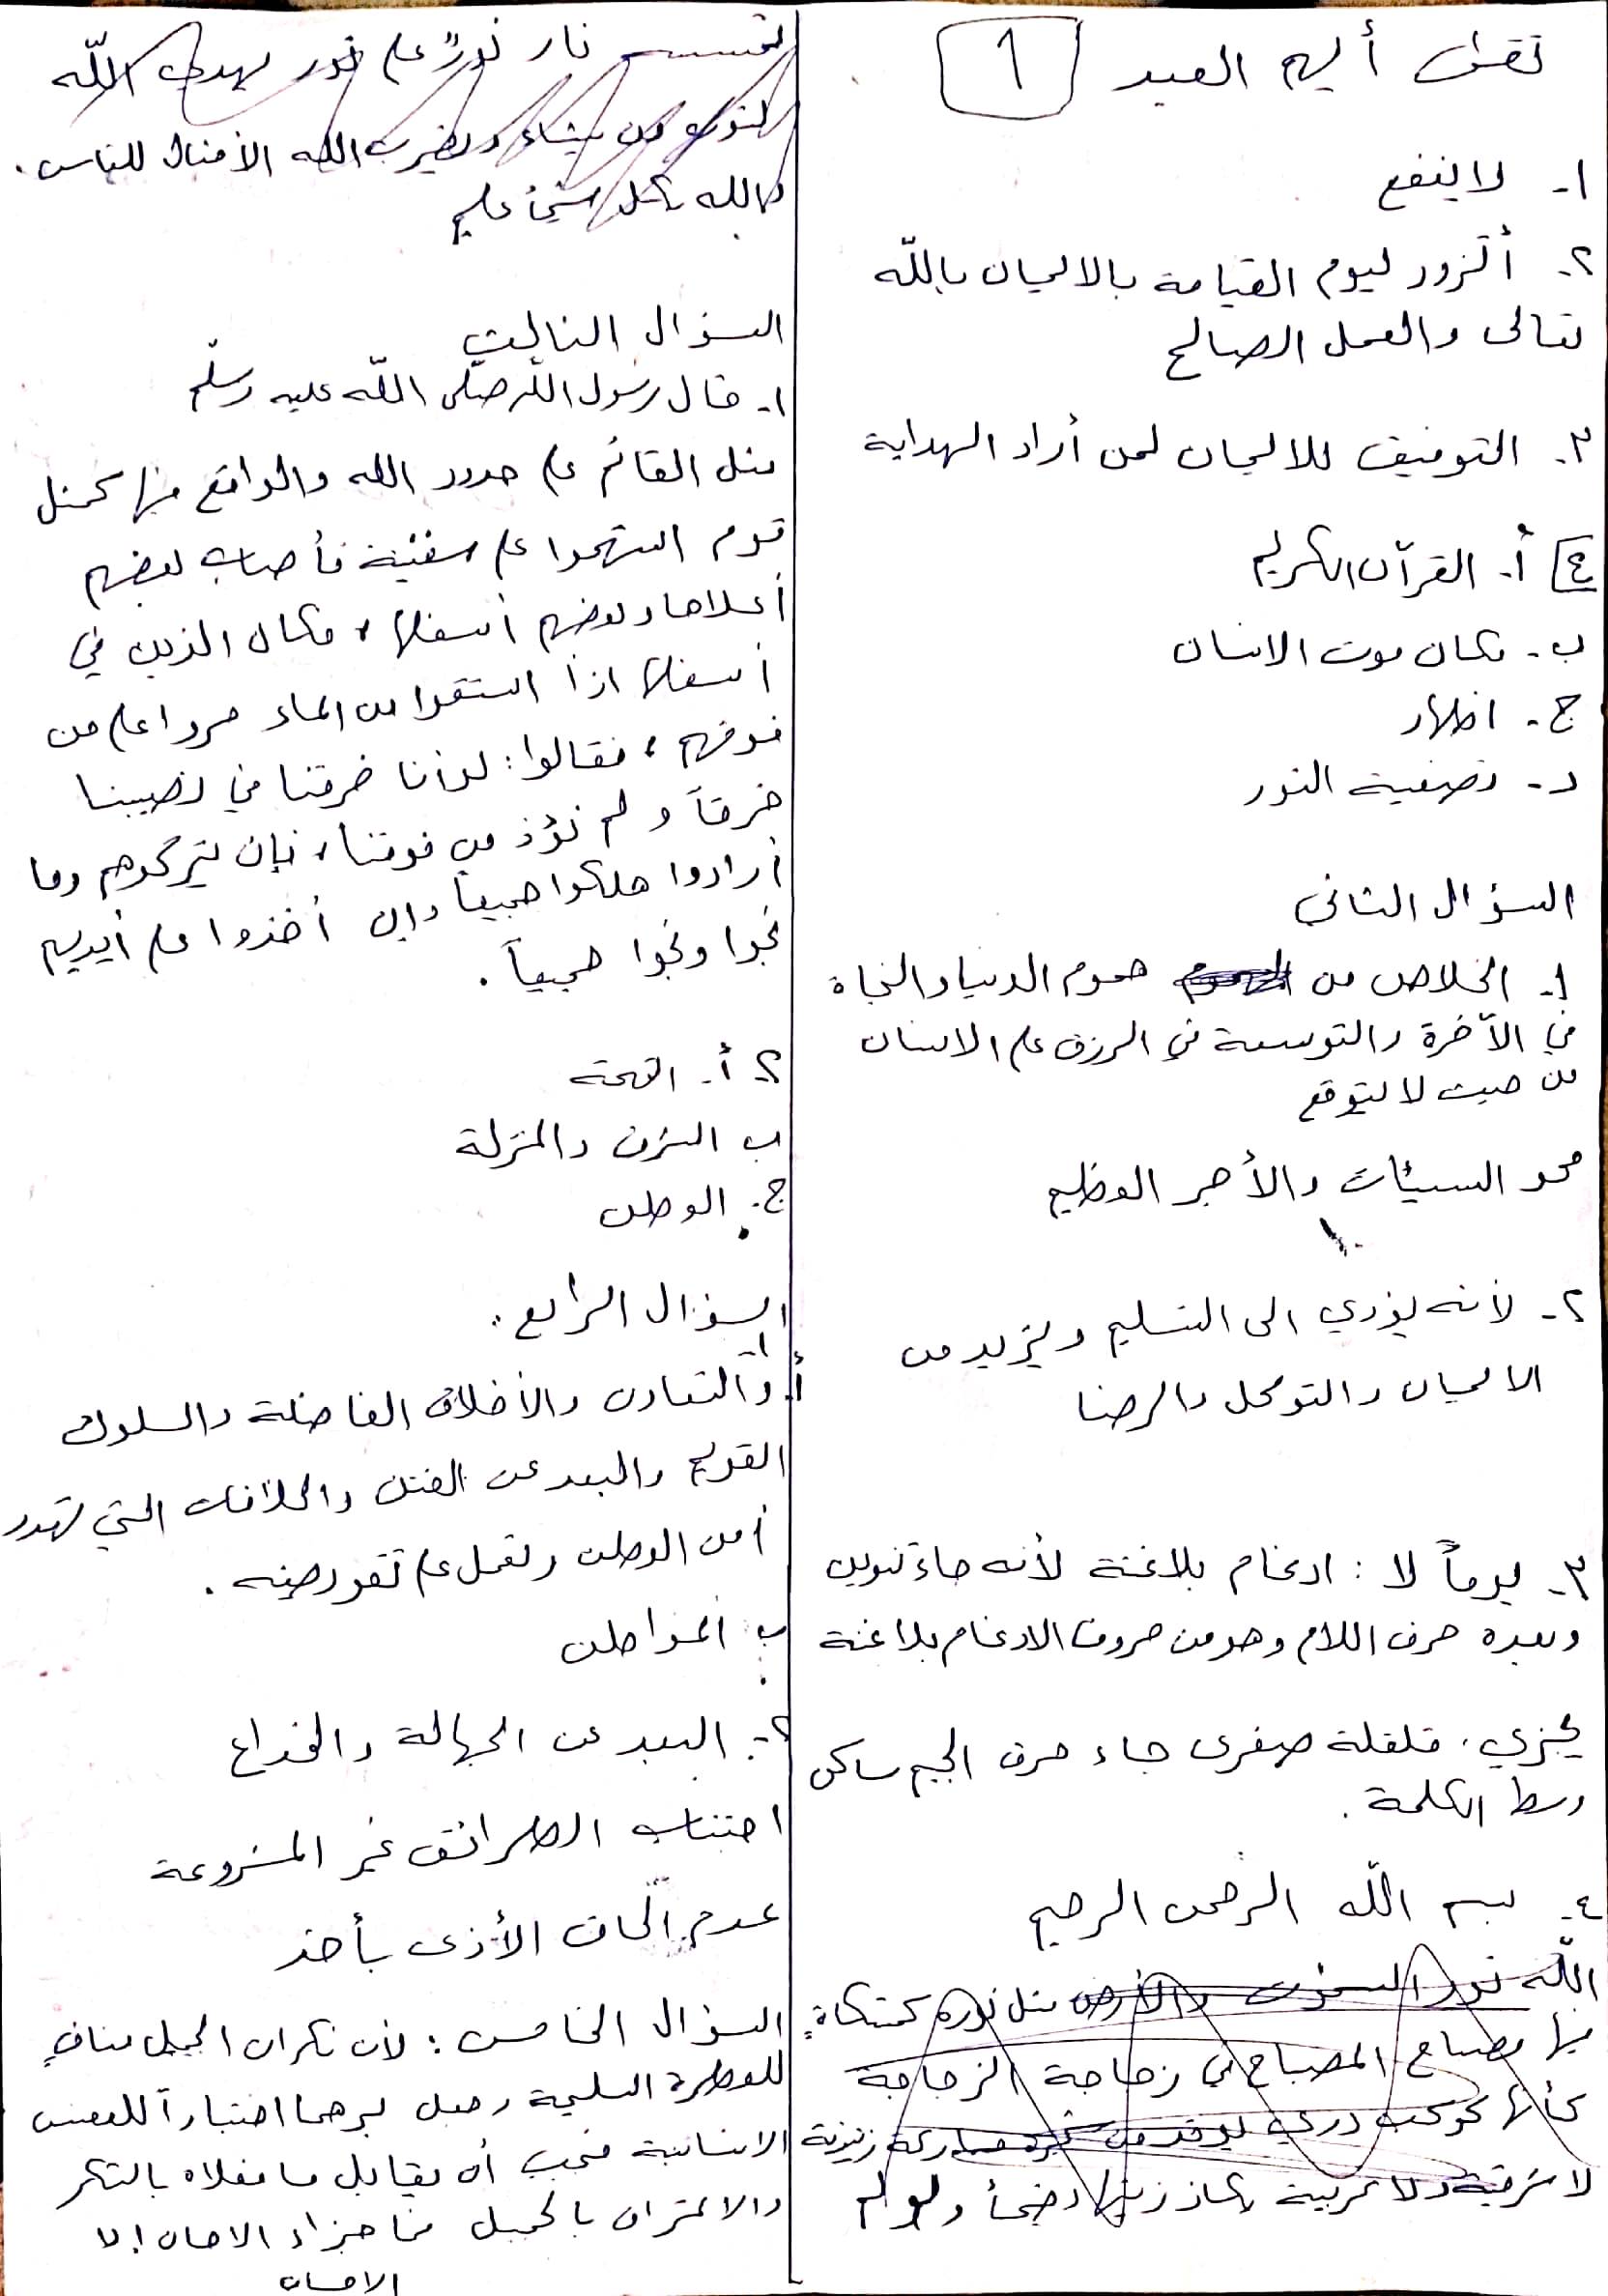 تقى أيهم العيد 1
١- لا ينفع
٢- ألتزود ليوم القيامة بالايمان بالله
تعالى والعمل الصالح
٣- التوفيق للايمان لمن أراد الهداية
٤ أ- القرآن الكريم
ب- مكان موت الانسان
ج- اظهار
د- تصفية النور
السؤال الثاني
١- الخلاص من هموم الدنيا والنجاة
في الآخرة والتوسعة في الرزق على الانسان
من حيث لا يتوقع
محو السيئات والأجر العظيم
٢- لأنه يؤدي الى التسليم ويزيد من
الايمان والتوكل والرضا
٣- يوماً لا : ادغام بلاغنة لأنه جاء تنوين
وبعده حرف اللام وهو من حروف الادغام بلا غنة
يجزي، قلقلة صغرى جاء حرف الجيم ساكن
وسط الكلمة.
٤- بسم الله الرحمن الرحيم
الله نور السموت والأرض مثل نوره كمشكاةٍ
فيها مصباح المصباح في زجاجة الزجاجة
كأنها كوكب دري يوقد من شجرة مباركة زيتونة
لا شرقية ولا غربية يكاد زيتها يضيأ ولو لم
تمسسه نار نورٌ على نور يهدي الله
لنوره من يشاء ويضرب الله الأمثال للناس.
والله بكل شيئ عليم
السؤال الثالث
١- قال رسول الله صلّى الله عليه وسلّم
مثل القائم على حدود الله والواقع فيها كمثل
قوم استهموا على سفينة فأصاب بعضهم
أعلاها وبعضهم أسفلها، فكان الذين في
أسفلها اذا استقوا من الماء مروا على من
فوقهم، فقالوا: لو أنا خرقنا في نصيبنا
خرقاً ولم نؤذ من فوقنا، فإن يتركوهم وما
أرادوا هلكوا جميعاً وإن أخذوا على أيديهم
نجوا ونجوا جميعاً.
٢ أ- التهمة
ب الشرف والمنزلة
ج. الوطن
السؤال الرابع.
١-
أ. والتعاون والأخلاق الفاضلة والسلوك
القويم والبعد عن الفتن والخلافات التي تهدد
أمن الوطن وتعمل على تقويضه.
ب: المواطن
٢-: البعد عن الجهالة والخداع
اجتناب الطرائق غير المشروعة
عدم الحاق الأذى بأحد
السؤال الخامس: لأن نكران الجميل منافٍ
للفطرة السليمة وجعل برهما اختباراً للنفس
الانسانية فيجب أن يقابل ما فعلاه بالشكر
والاعتراف بالجميل فما جزاء الاحسان إلا
الاحسان